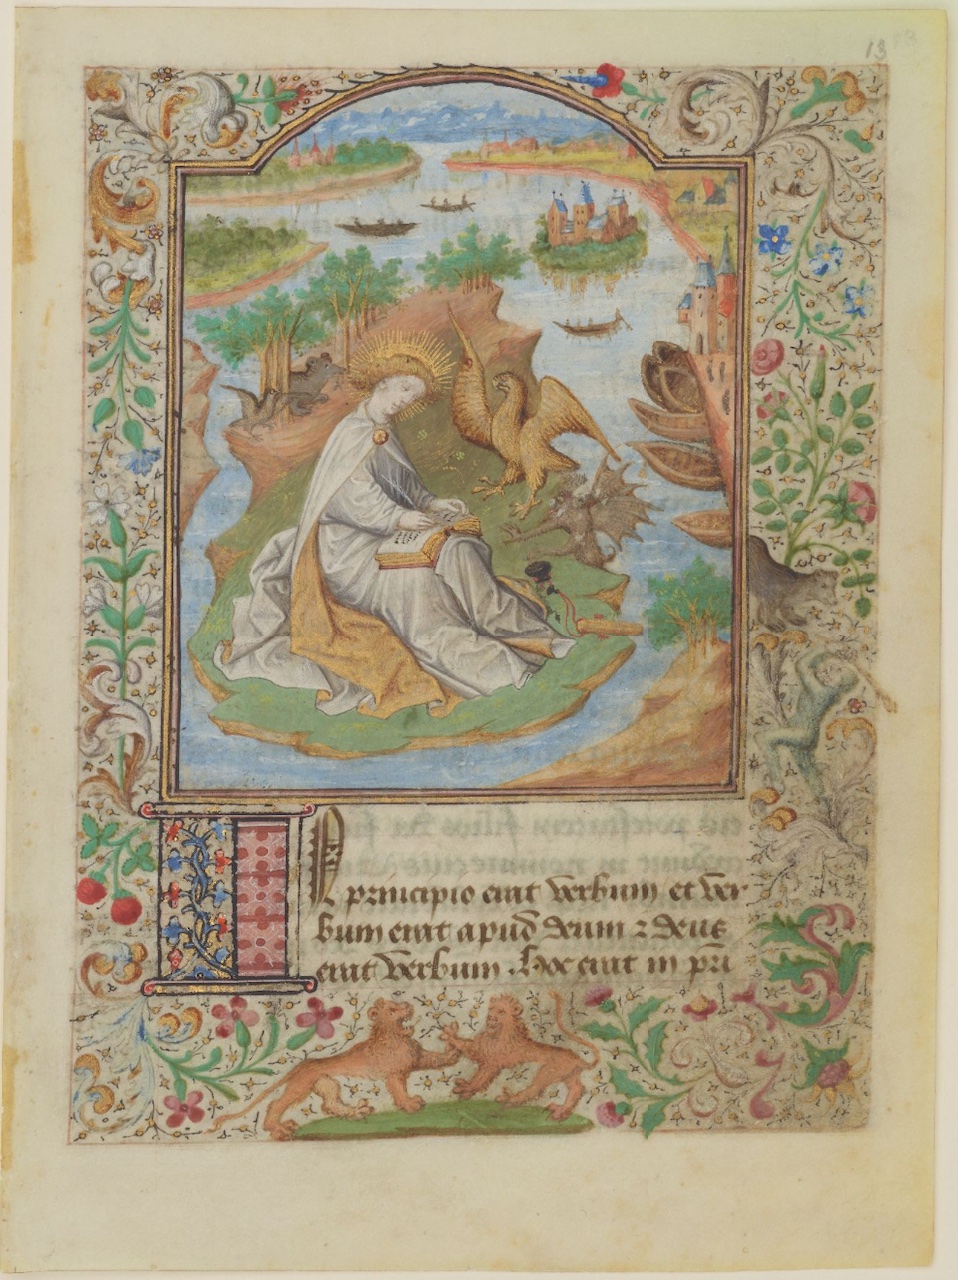 13
In principio erat verbum et ver
bum erat apud deum ⁊ deus
erat verbum . Hoc erat in pri